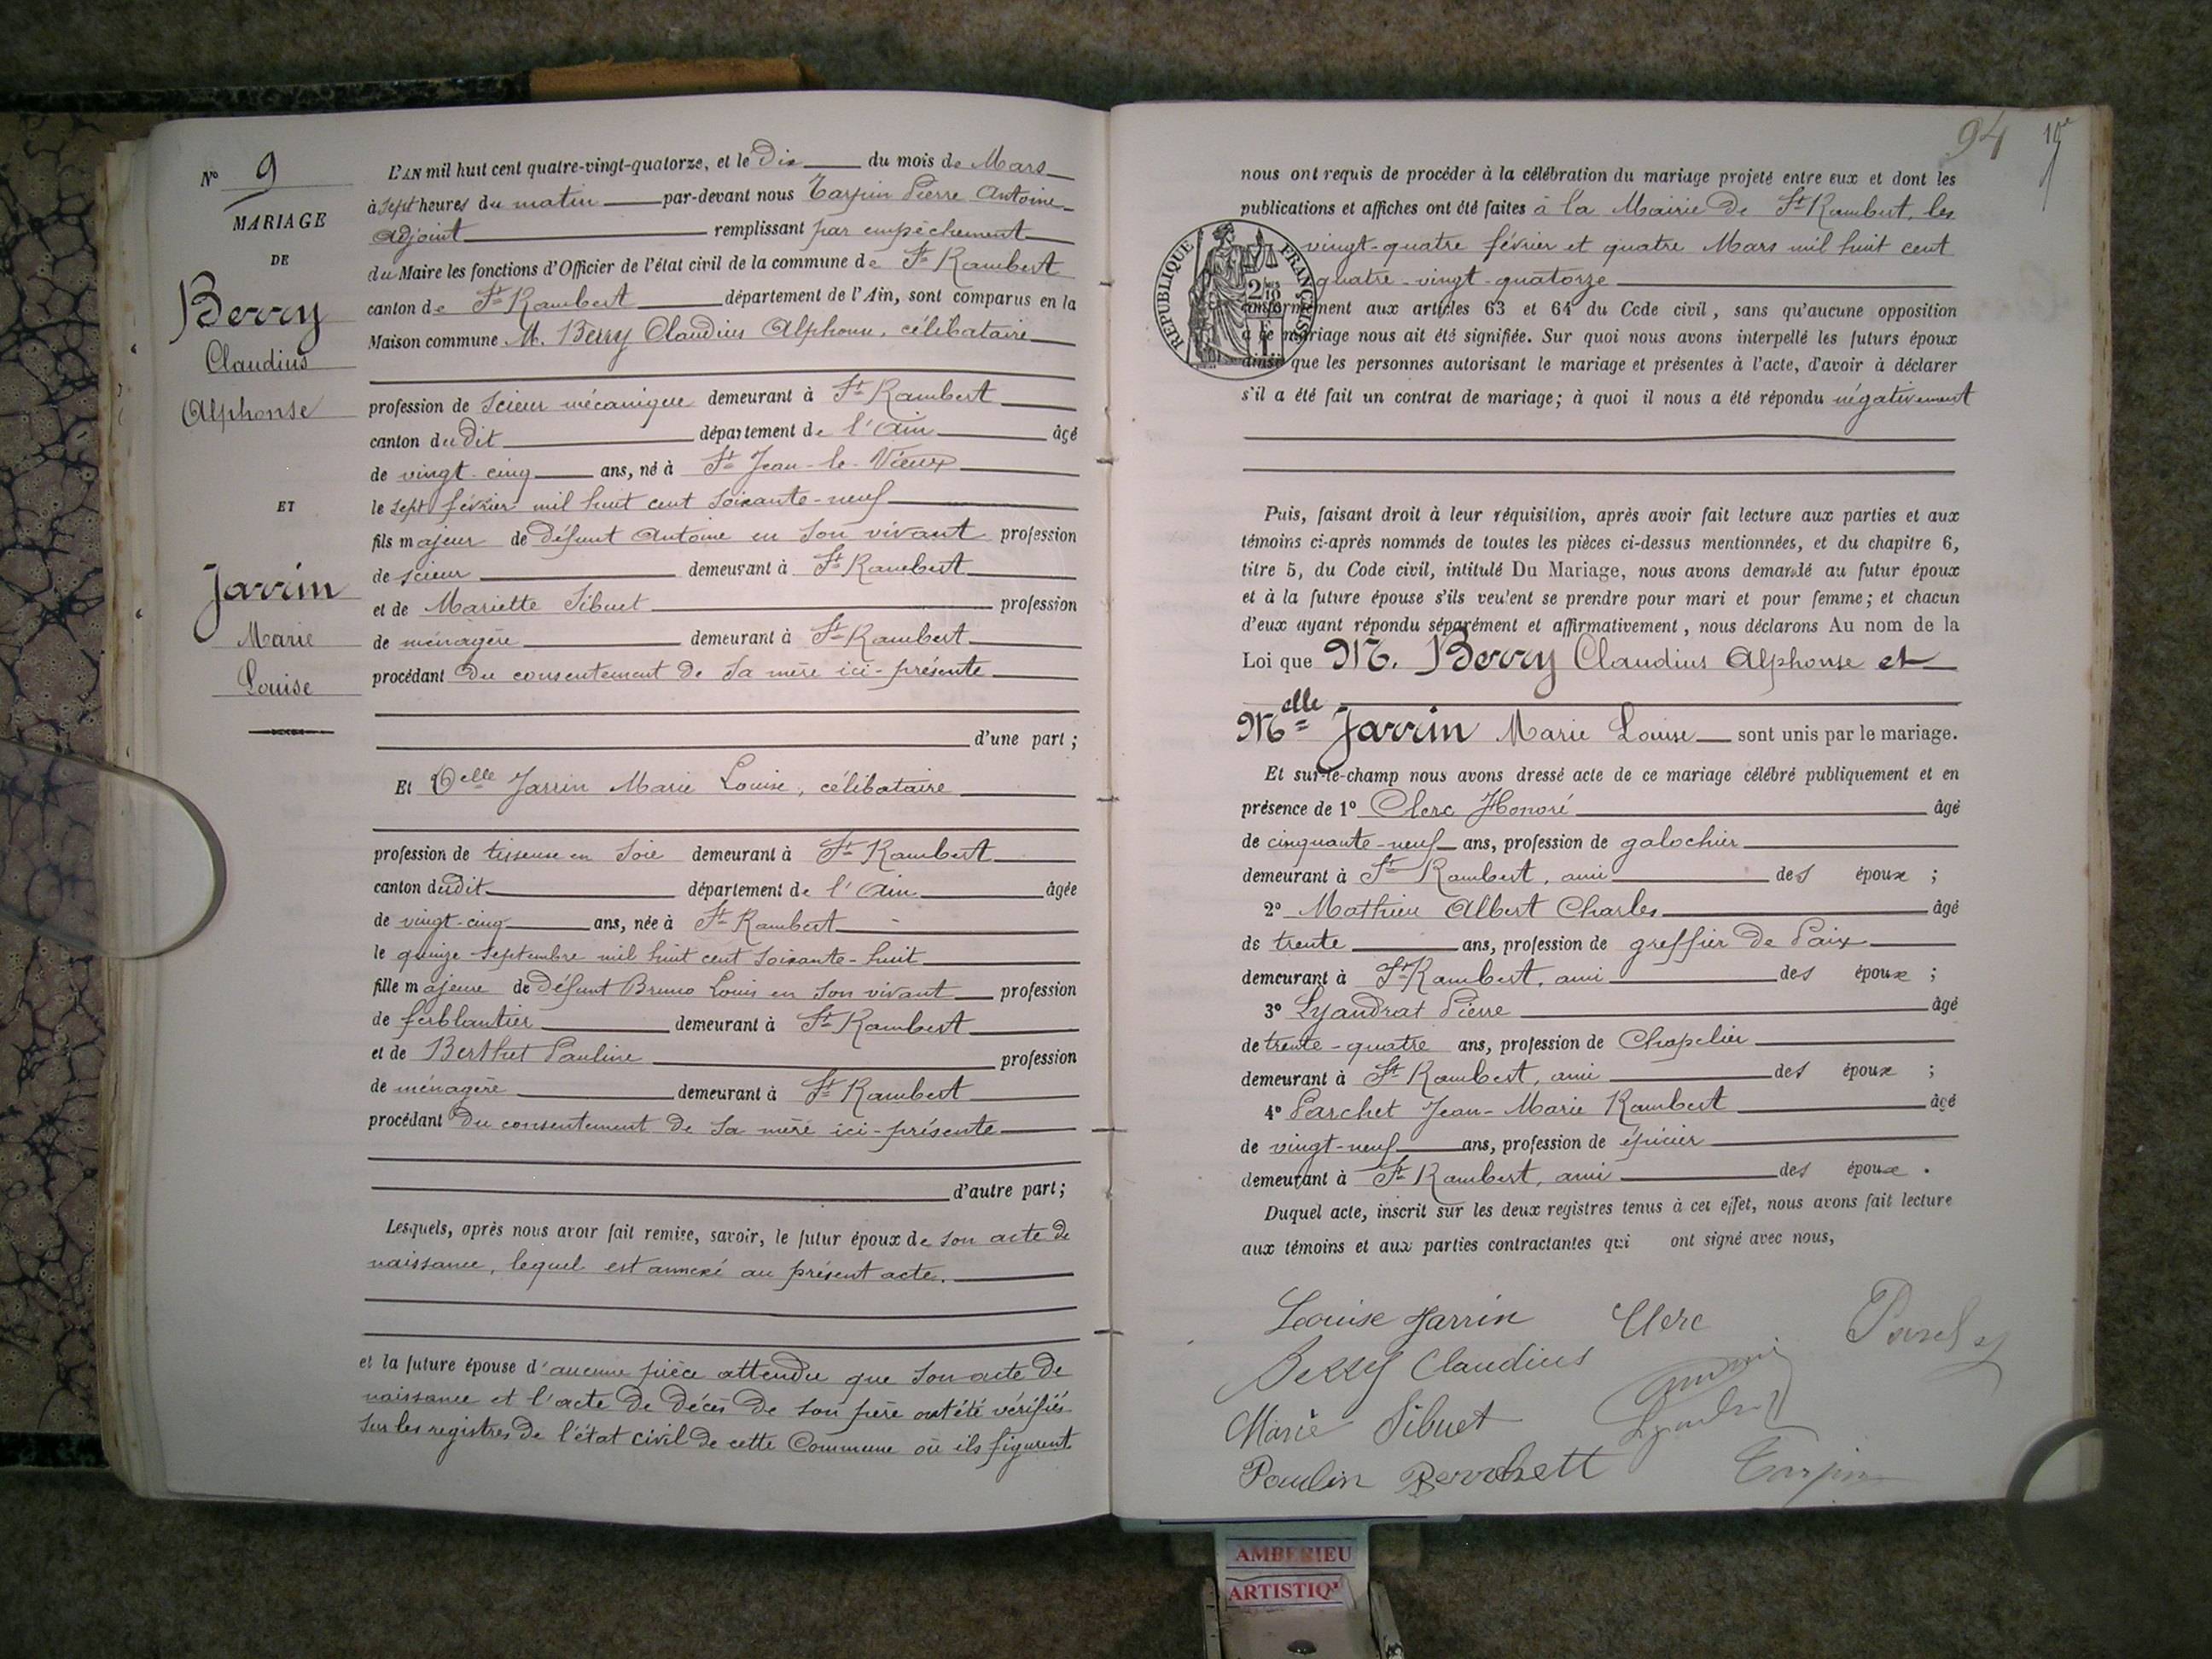 N° 9
MARIAGE
DE
Berry
Claudius
Alphonse
ET
Jarrin
Marie
Louise
L'AN mil huit cent quatre-vingt-quatorze, et le Dix du mois de Mars
à sept heures du matin par-devant nous Tarpin Pierre Antoine
adjoint remplissant par empêchement
du Maire les fonctions d'Officier de l'état civil de la commune de St Rambert
canton de St Rambert département de l'Ain, sont comparus en la
Maison commune M. Berry Claudius Alphonse, célibataire
profession de scieur mécanique demeurant à St Rambert
canton dudit département de l'Ain âgé
de vingt-cinq ans, né à St Jean-le-Vieux
le sept février mil huit cent soixante-neuf
fils majeur de défunt Antoine en son vivant profession
de scieur demeurant à St Rambert
et de Mariette Sibuet profession
de ménagère demeurant à St Rambert
procédant du consentement de sa mère ici-présente
d'une part;
Et Delle Jarrin Marie Louise, célibataire
profession de tisseuse en soie demeurant à St Rambert
canton dudit département de l'Ain âgée
de vingt-cinq ans, née à St Rambert
le quinze septembre mil huit cent soixante-huit
fille majeure de défunt Bruno Louis en son vivant profession
de ferblantier demeurant à St Rambert
et de Berthet Pauline profession
de ménagère demeurant à St Rambert
procédant du consentement de sa mère ici-présente
d'autre part;
Lesquels, après nous avoir fait remise, savoir, le futur époux de son acte de
naissance, lequel est annexé au présent acte.
et la future épouse d'aucune pièce attendu que son acte de
naissance et l'acte de décès de son père ont été vérifiés
sur les registres de l'état civil de cette Commune où ils figurent
94 10e
nous ont requis de procéder à la célébration du mariage projeté entre eux et dont les
publications et affiches ont été faites à la Mairie de St Rambert, les
vingt-quatre février et quatre Mars mil huit cent
quatre-vingt-quatorze
RÉPUBLIQUE FRANÇAISE
conformément aux articles 63 et 64 du Code civil, sans qu'aucune opposition
à ce mariage nous ait été signifiée. Sur quoi nous avons interpellé les futurs époux
ainsi que les personnes autorisant le mariage et présentes à l'acte, d'avoir à déclarer
s'il a été fait un contrat de mariage; à quoi il nous a été répondu négativement
Puis, faisant droit à leur réquisition, après avoir fait lecture aux parties et aux
témoins ci-après nommés de toutes les pièces ci-dessus mentionnées, et du chapitre 6,
titre 5, du Code civil, intitulé Du Mariage, nous avons demandé au futur époux
et à la future épouse s'ils veulent se prendre pour mari et pour femme; et chacun
d'eux ayant répondu séparément et affirmativement, nous déclarons Au nom de la
Loi que M. Berry Claudius Alphonse et
Melle Jarrin Marie Louise sont unis par le mariage.
Et sur-le-champ nous avons dressé acte de ce mariage célébré publiquement et en
présence de 1° Clerc Honoré âgé
de cinquante-neuf ans, profession de galochier
demeurant à St Rambert, ami des époux ;
2° Mathieu Albert Charles âgé
de trente ans, profession de greffier de Paix
demeurant à St Rambert, ami des époux ;
3° Lyaudrat Pierre âgé
de trente-quatre ans, profession de Chapelier
demeurant à St Rambert, ami des époux ;
4° Parchet Jean-Marie Rambert âgé
de vingt-neuf ans, profession de épicier
demeurant à St Rambert, ami des époux .
Duquel acte, inscrit sur les deux registres tenus à cet effet, nous avons fait lecture
aux témoins et aux parties contractantes qui ont signé avec nous,
Louise Jarrin Clerc
Berry Claudius
Marie Sibuet
Poulin Tarpin
AMBERIEU
ARTISTIQ